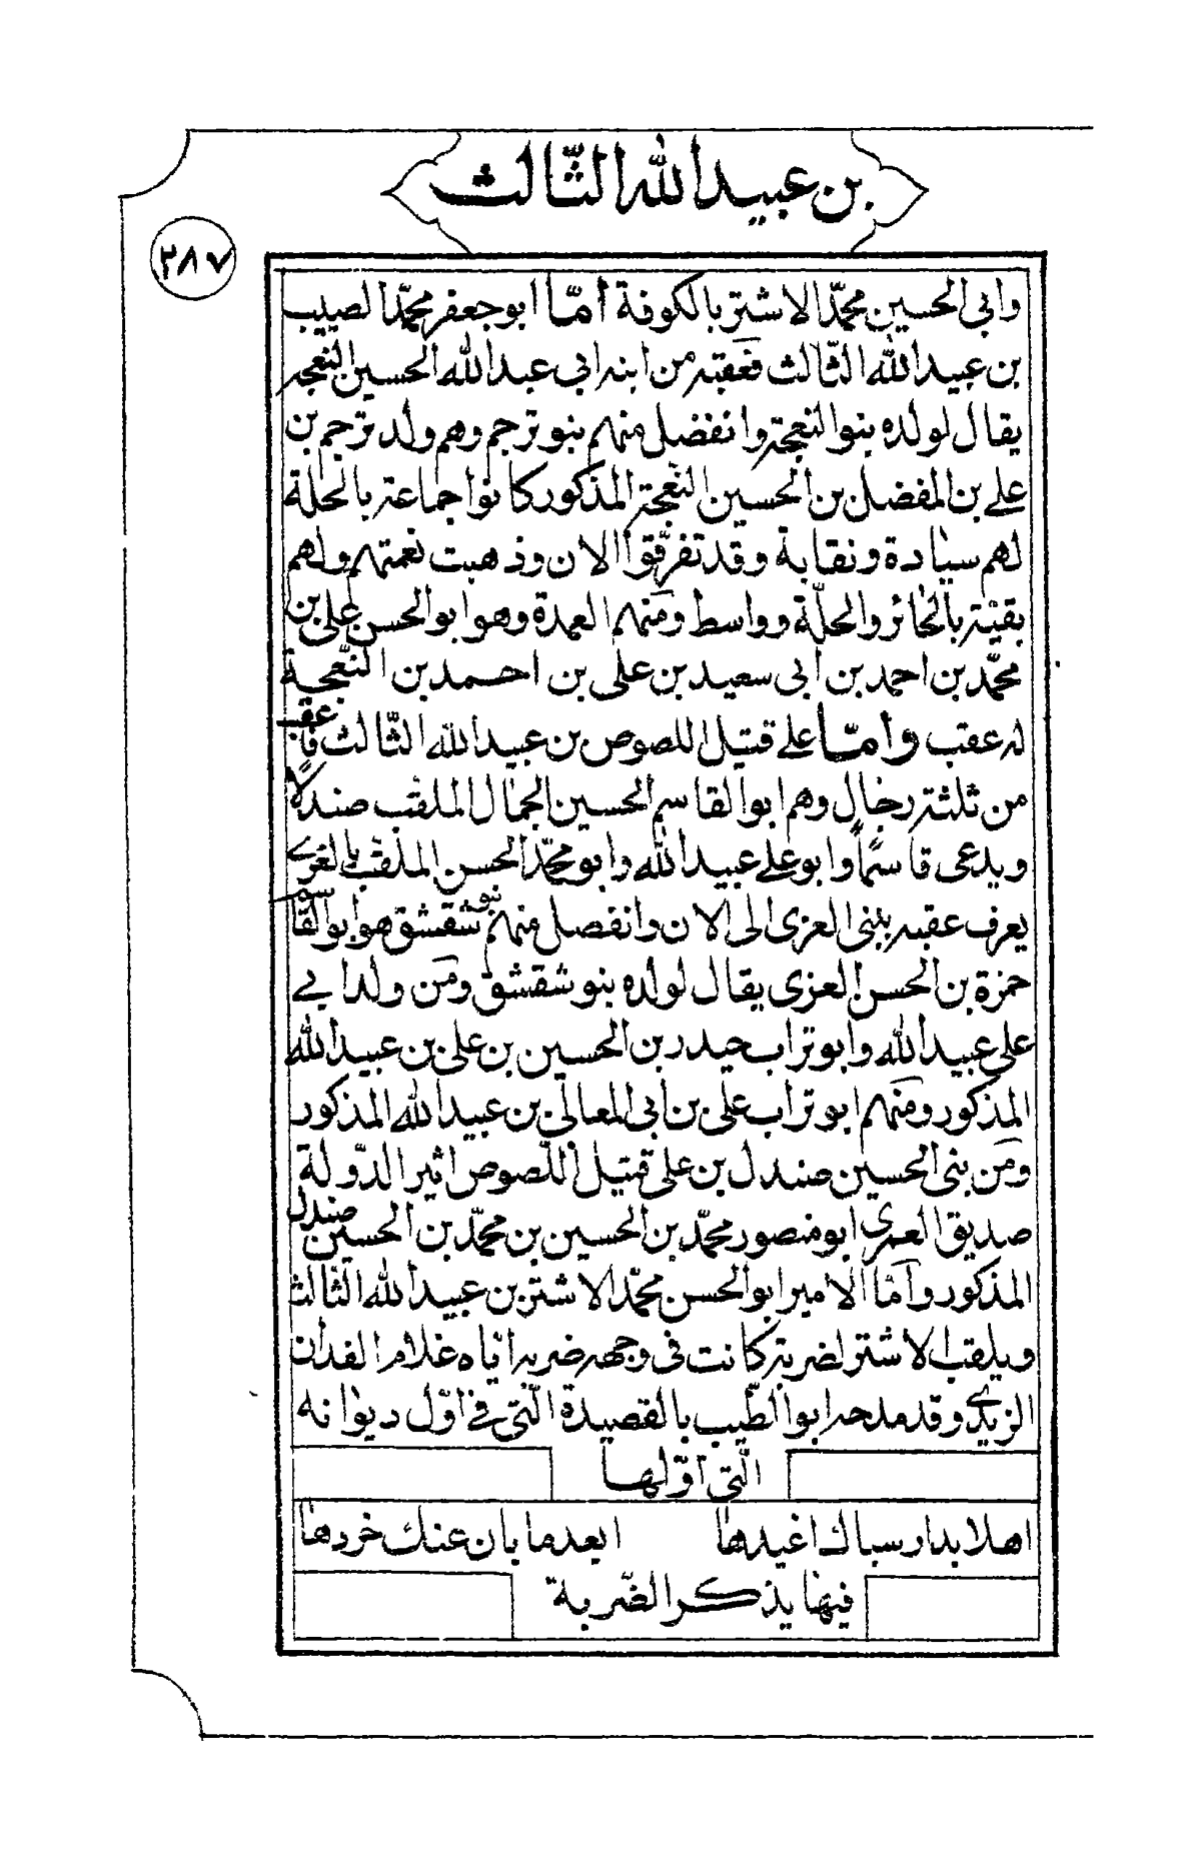 بن عبيد الله الثّالث
٢٨٧
وابي الحسين محمّد الاشتر بالكوفة امّا ابو جعفر محمّد الصبيب
بن عبيد الله الثّالث فعقبه من ابنه ابي عبد الله الحسين النعجه
يقال لولده بنو النعجة وانفصل منهم بنو ترجم وهم ولد ترجم بن
علي بن المفضل بن الحسين النعجة المذكور كانوا جماعة بالحلة
لهم سيادة ونقابة وقد تفرّقوا الان وذهبت نعمتهم ولهم
بقيّة بالحائر والحلّة وواسط ومنهم العمدة وهو ابو الحسن علي بن
محمّد بن احمد بن ابي سعيد بن علي بن احمد بن النّعجة
له عقب وامّا علي قتيل اللصوص بن عبيد الله الثّالث فاعقب
من ثلثة رجال وهم ابو القاسم الحسين الجمال الملقب صندلًا
ويدعى قاسمًا وابو علي عبيد الله وابو محمّد الحسن الملقب بالغرى
يعرف عقبه ببنى العزى الى الان وانفصل منهم بنو شقشق هو ابو القاسم
حمزة بن الحسن العزى يقال لولده بنو شقشق ومن ولد ابي
على عبيد الله وابو تراب حيدر بن الحسين بن على بن عبيد الله
المذكور ومنهم ابو تراب على بن ابي المعالى بن عبيد الله المذكور
ومن بنى الحسين صندل بن على قتيل اللصوص اثير الدّولة
صديق العمرى ابو منصور محمّد بن الحسين بن محمّد بن الحسين صندل
المذكور وامّا الامير ابو الحسن محمّد الاشتر بن عبيد الله الثّالث
ويلقب الاشتر لضربة كانت فى وجهه ضربه ايّاه غلام الفدان
الزيدى وقد مدحه ابو الطّيب بالقصيدة الّتى فى اوّل ديوانه
الّتى اوّلها
اهلا بدار سباك اغيدها ابعد ما بان عنك خردها
فيها يذكر الضّربة